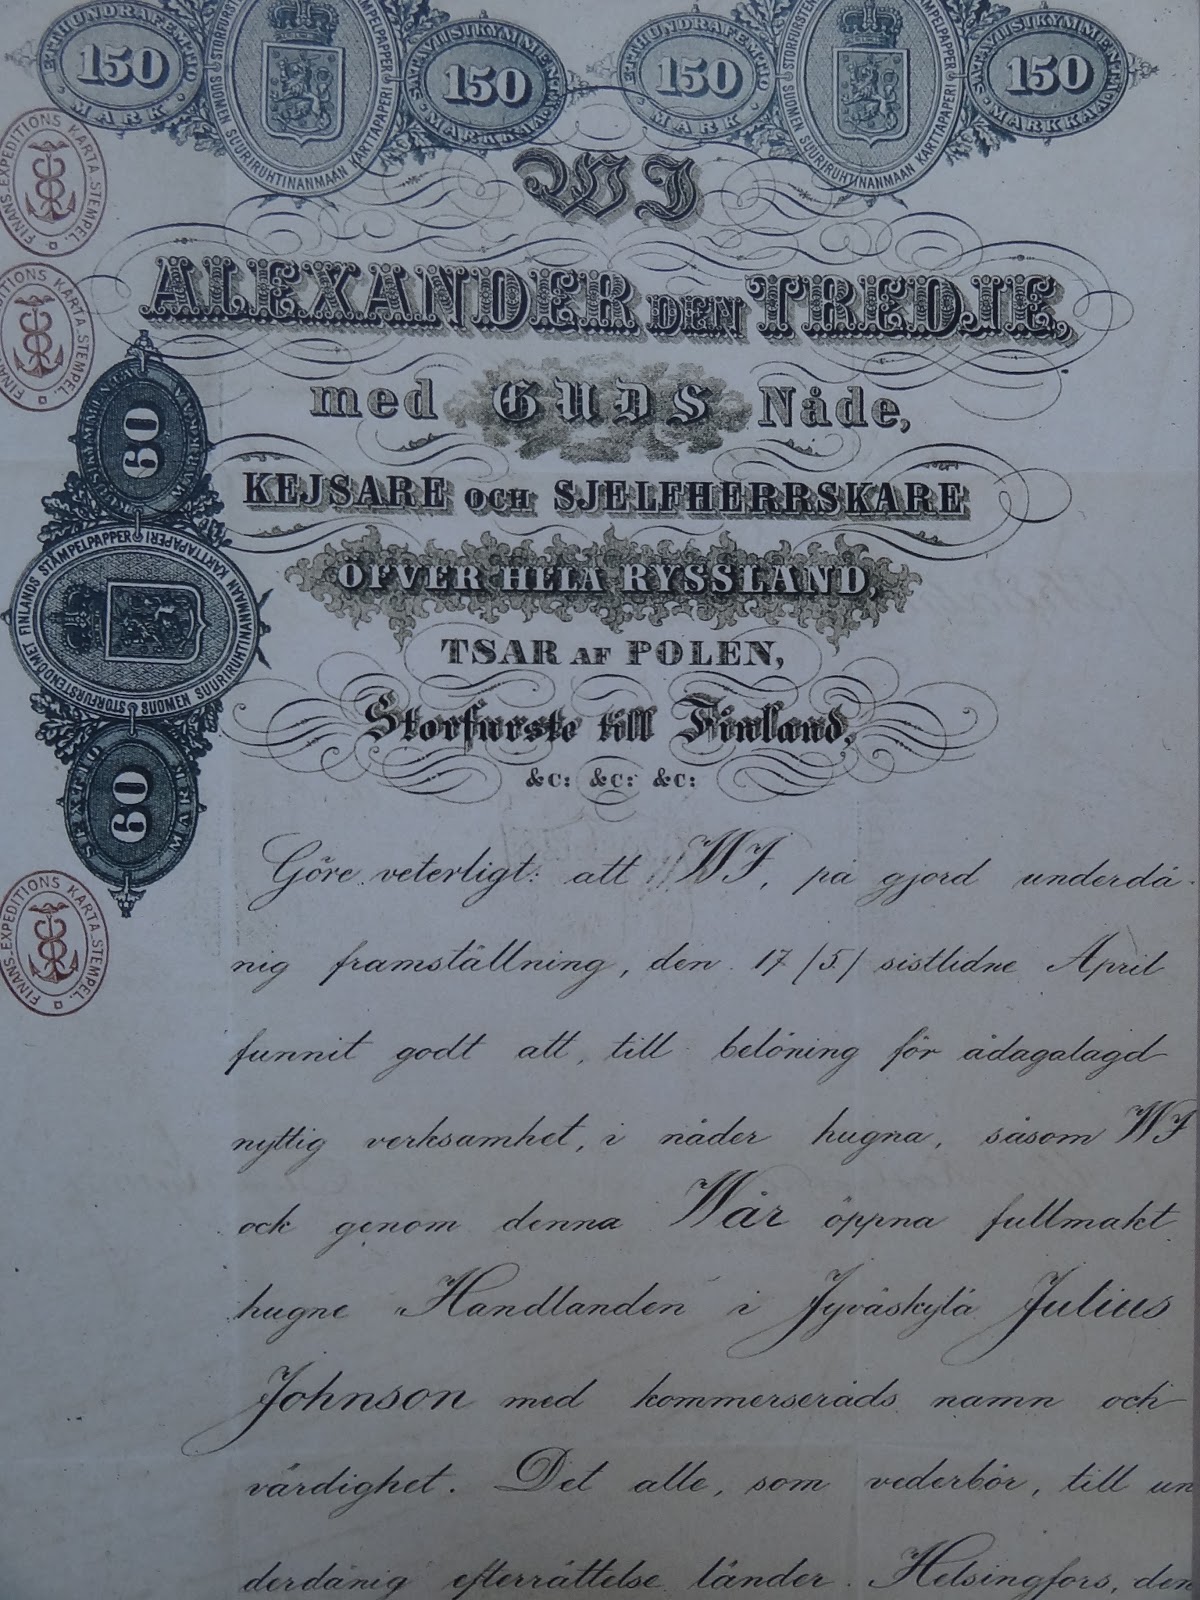 ETTHUNDRAFEMTIO MARK 150
SATAVIISIKYMMENTÄ MARKKAA 150
ETTHUNDRAFEMTIO MARK 150
SATAVIISIKYMMENTÄ MARKKAA 150
SUOMEN SUURIRUHTINANMAAN KARTTAPAPERI
SUURIRUHTINANMAAN KARTTAPAPERI
WI
ALEXANDER DEN TREDJE,
med GUDS Nåde,
KEJSARE OCH SJELFHERRSKARE
ÖFVER HELA RYSSLAND,
TSAR AF POLEN,
Storfurste till Finland,
&c: &c: &c:
FINANS-EXPEDITIONS KARTA STEMPEL.
KARTA STEMPEL.
60
STORFURSTENDÖMET FINLANDS STÄMPELPAPPER
SUOMEN SUURIRUHTINANMAAN KARTTAPAPERI
60
FINANS-EXPEDITIONS KARTA STEMPEL.
Göre veterligt: att WI, på gjord underdå-
nig framställning, den 17/5/ sistlidne April
funnit godt att, till belöning för ådagalagd
nyttig verksamhet, i nåder hugna, såsom WI
ock genom denna Wår öppna fullmakt
hugne Handlanden i Jyväskylä Julius
Johnson med kommerseråds namn och
värdighet. Det alle, som vederbör, till un
derdånig efterrättelse länder. Helsingfors, den